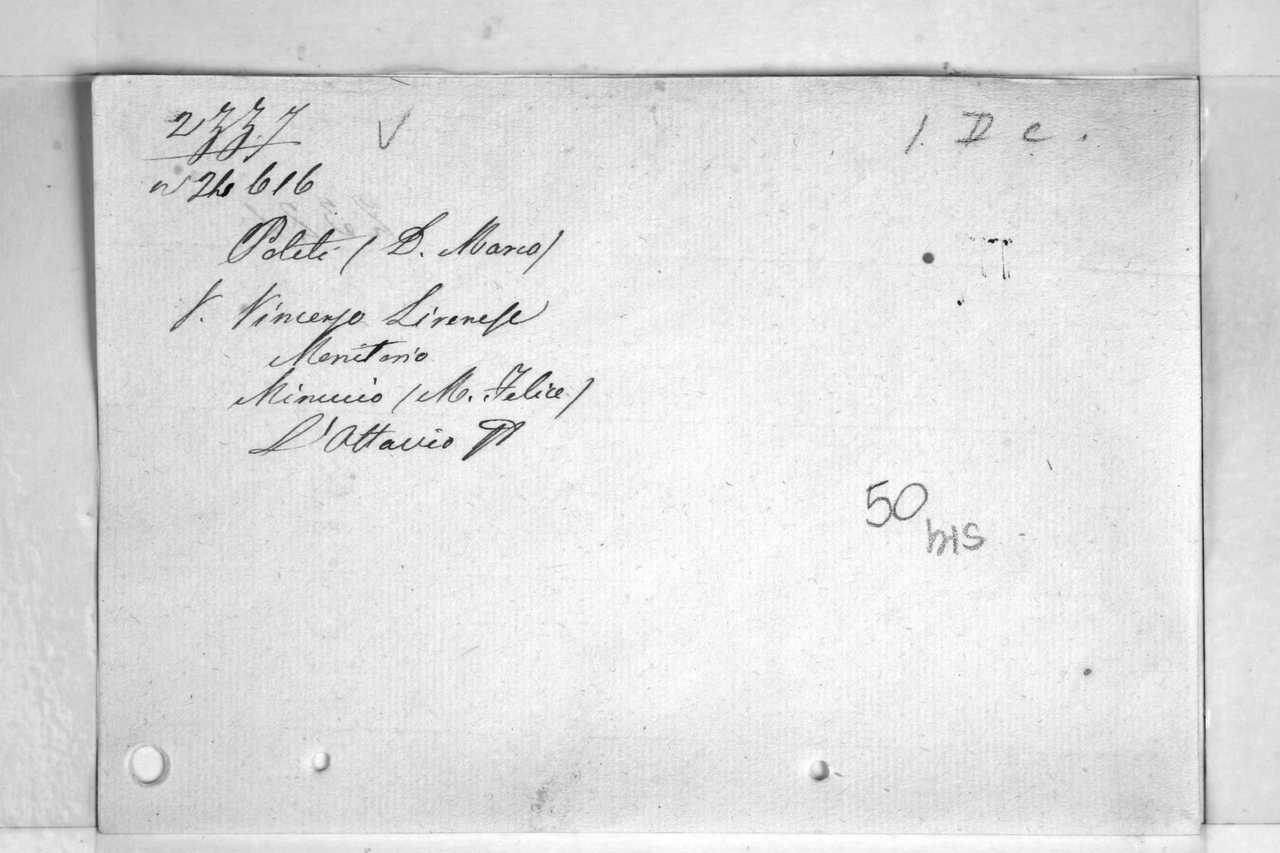 2337 V 1 D c.
616
Politi (D. Marco)
V. Vincenzo Lirenese
Monitorio
Minucio (M. Felice)
L'Ottavio
50
bis